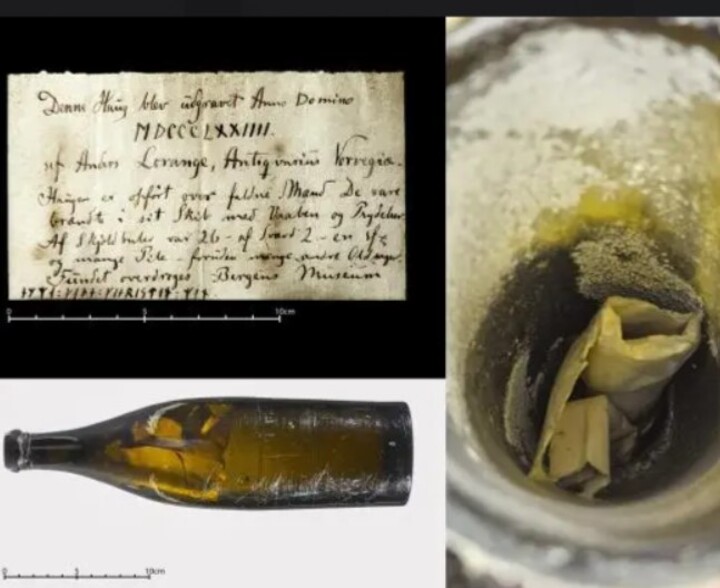 Denne Haug blev udgravet Anno Domino
MDCCCLXXIIII.
af Anders Lorange, Antiqvarius Norvegiæ.
Haugen er opført over faldne Mænd De vare
brændte i sit Skib med Vaaben og Prydelser
Af Skjoldbuler var 26 – af Sværd 2 – en
og mange Pile – foruden mange andre Oldsager.
Fundet overdroges Bergens Museum
0
5
10cm
0
10cm